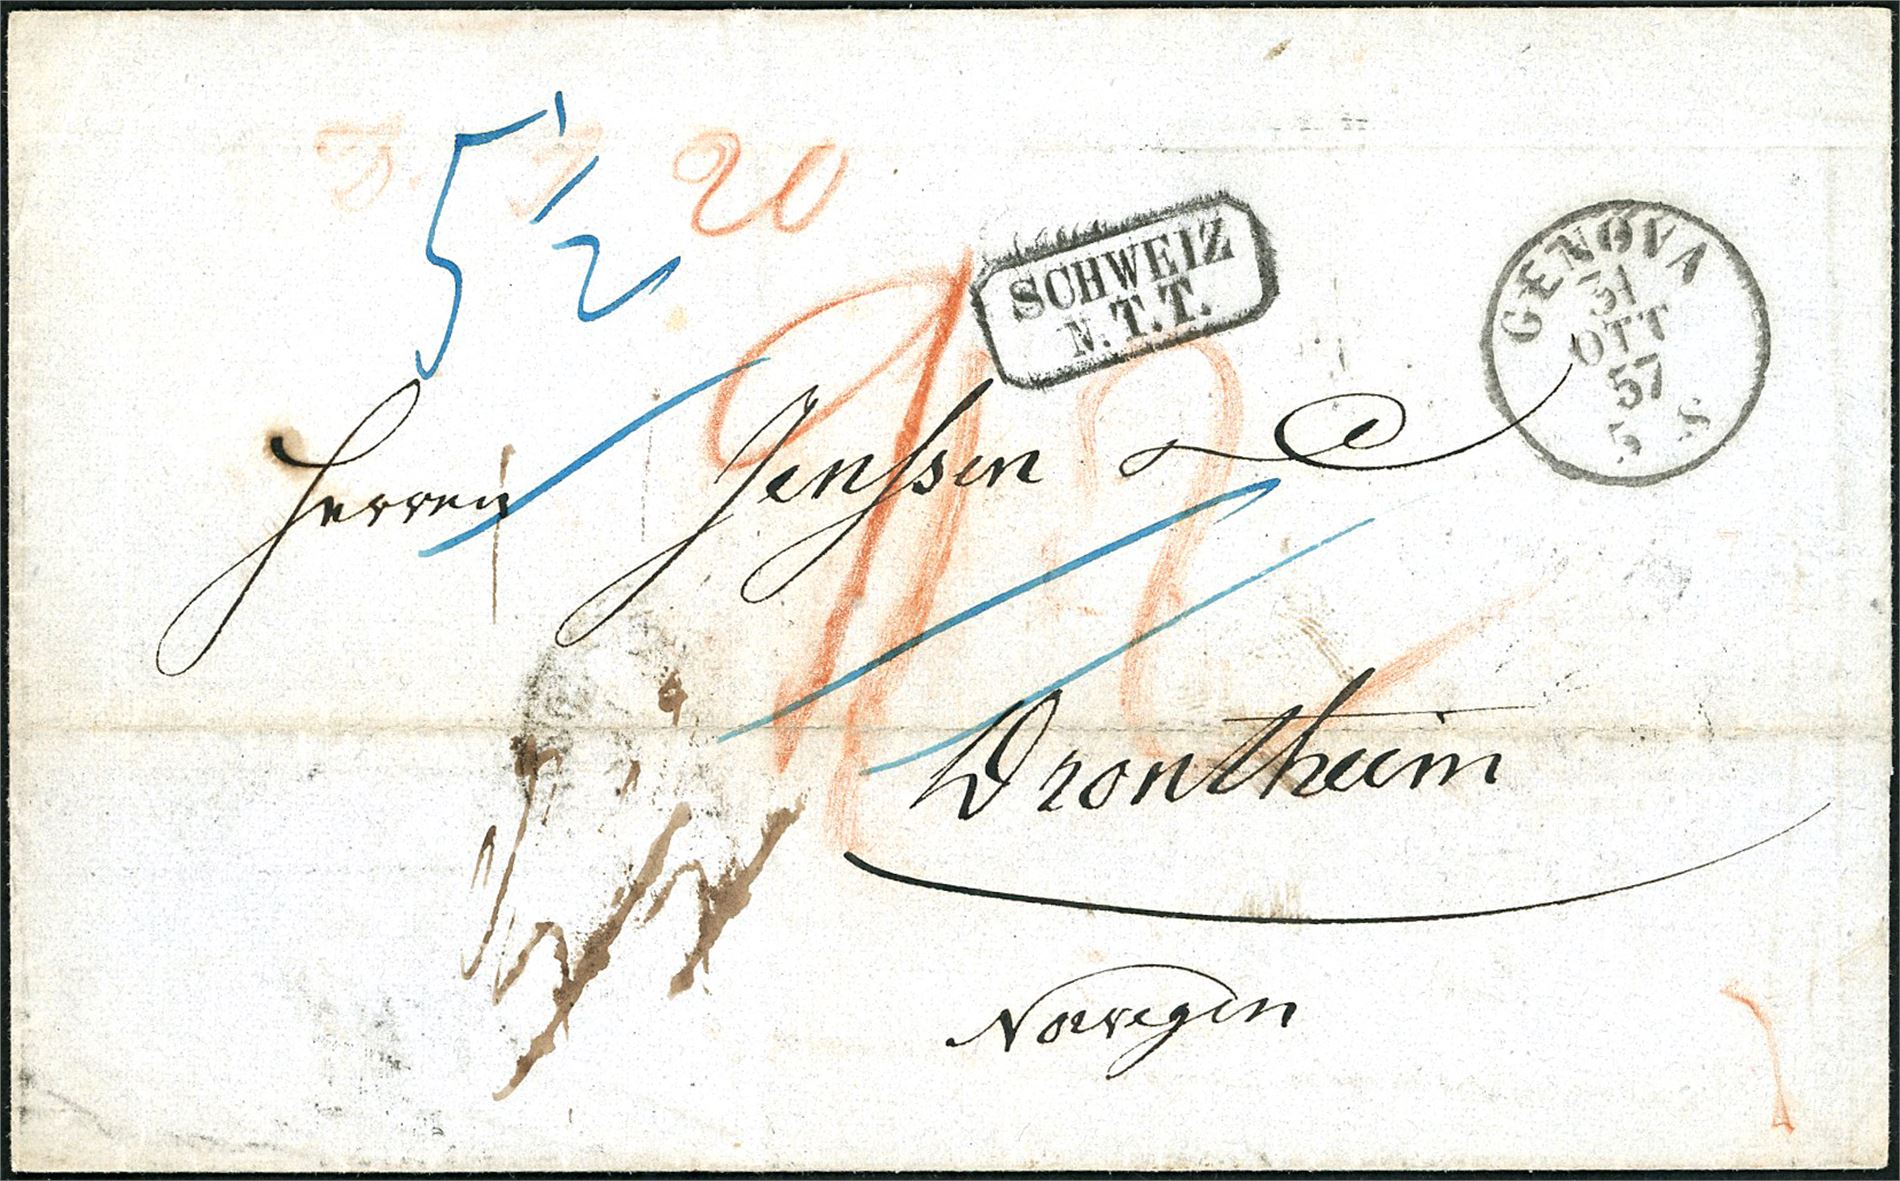 5 1/2
20
SCHWEIZ
N. T. T.
GENOVA
31
OTT
57
5 S
Herren Jenssen &
Drontheim
Norwegen